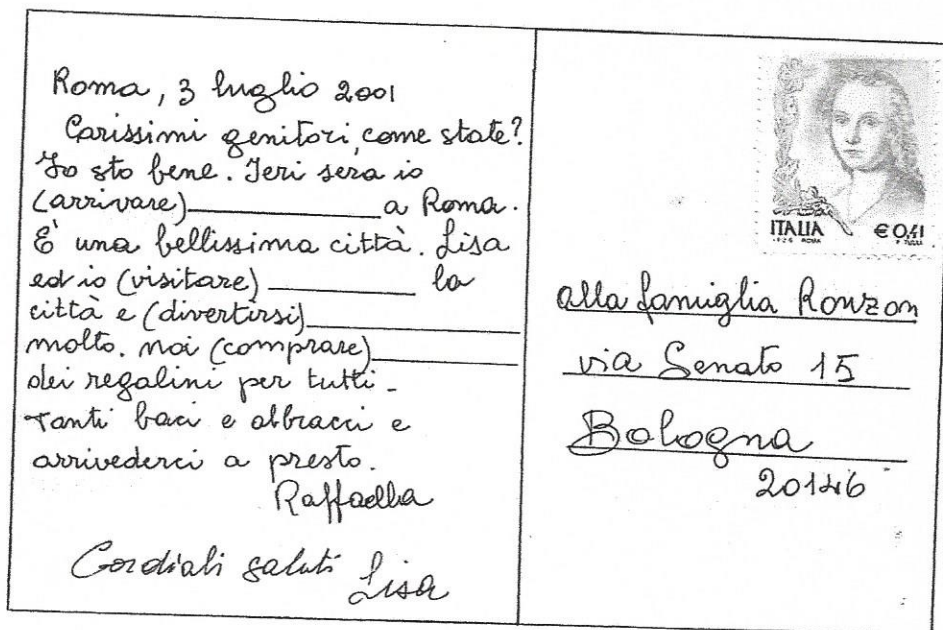 Roma, 3 luglio 2001
Carissimi genitori, come state?
Io sto bene. Ieri sera io
(arrivare)____________ a Roma.
È una bellissima città. Lisa
ed io (visitare) _________ la
città e (divertirsi)____________
molto. noi (comprare)_________
dei regalini per tutti -
Tanti baci e abbracci e
arrivederci a presto.
Raffaella
Cordiali saluti Lisa
ITALIA € 0,41
ROMA
alla famiglia Ronzon
via Senato 15
Bologna
20146